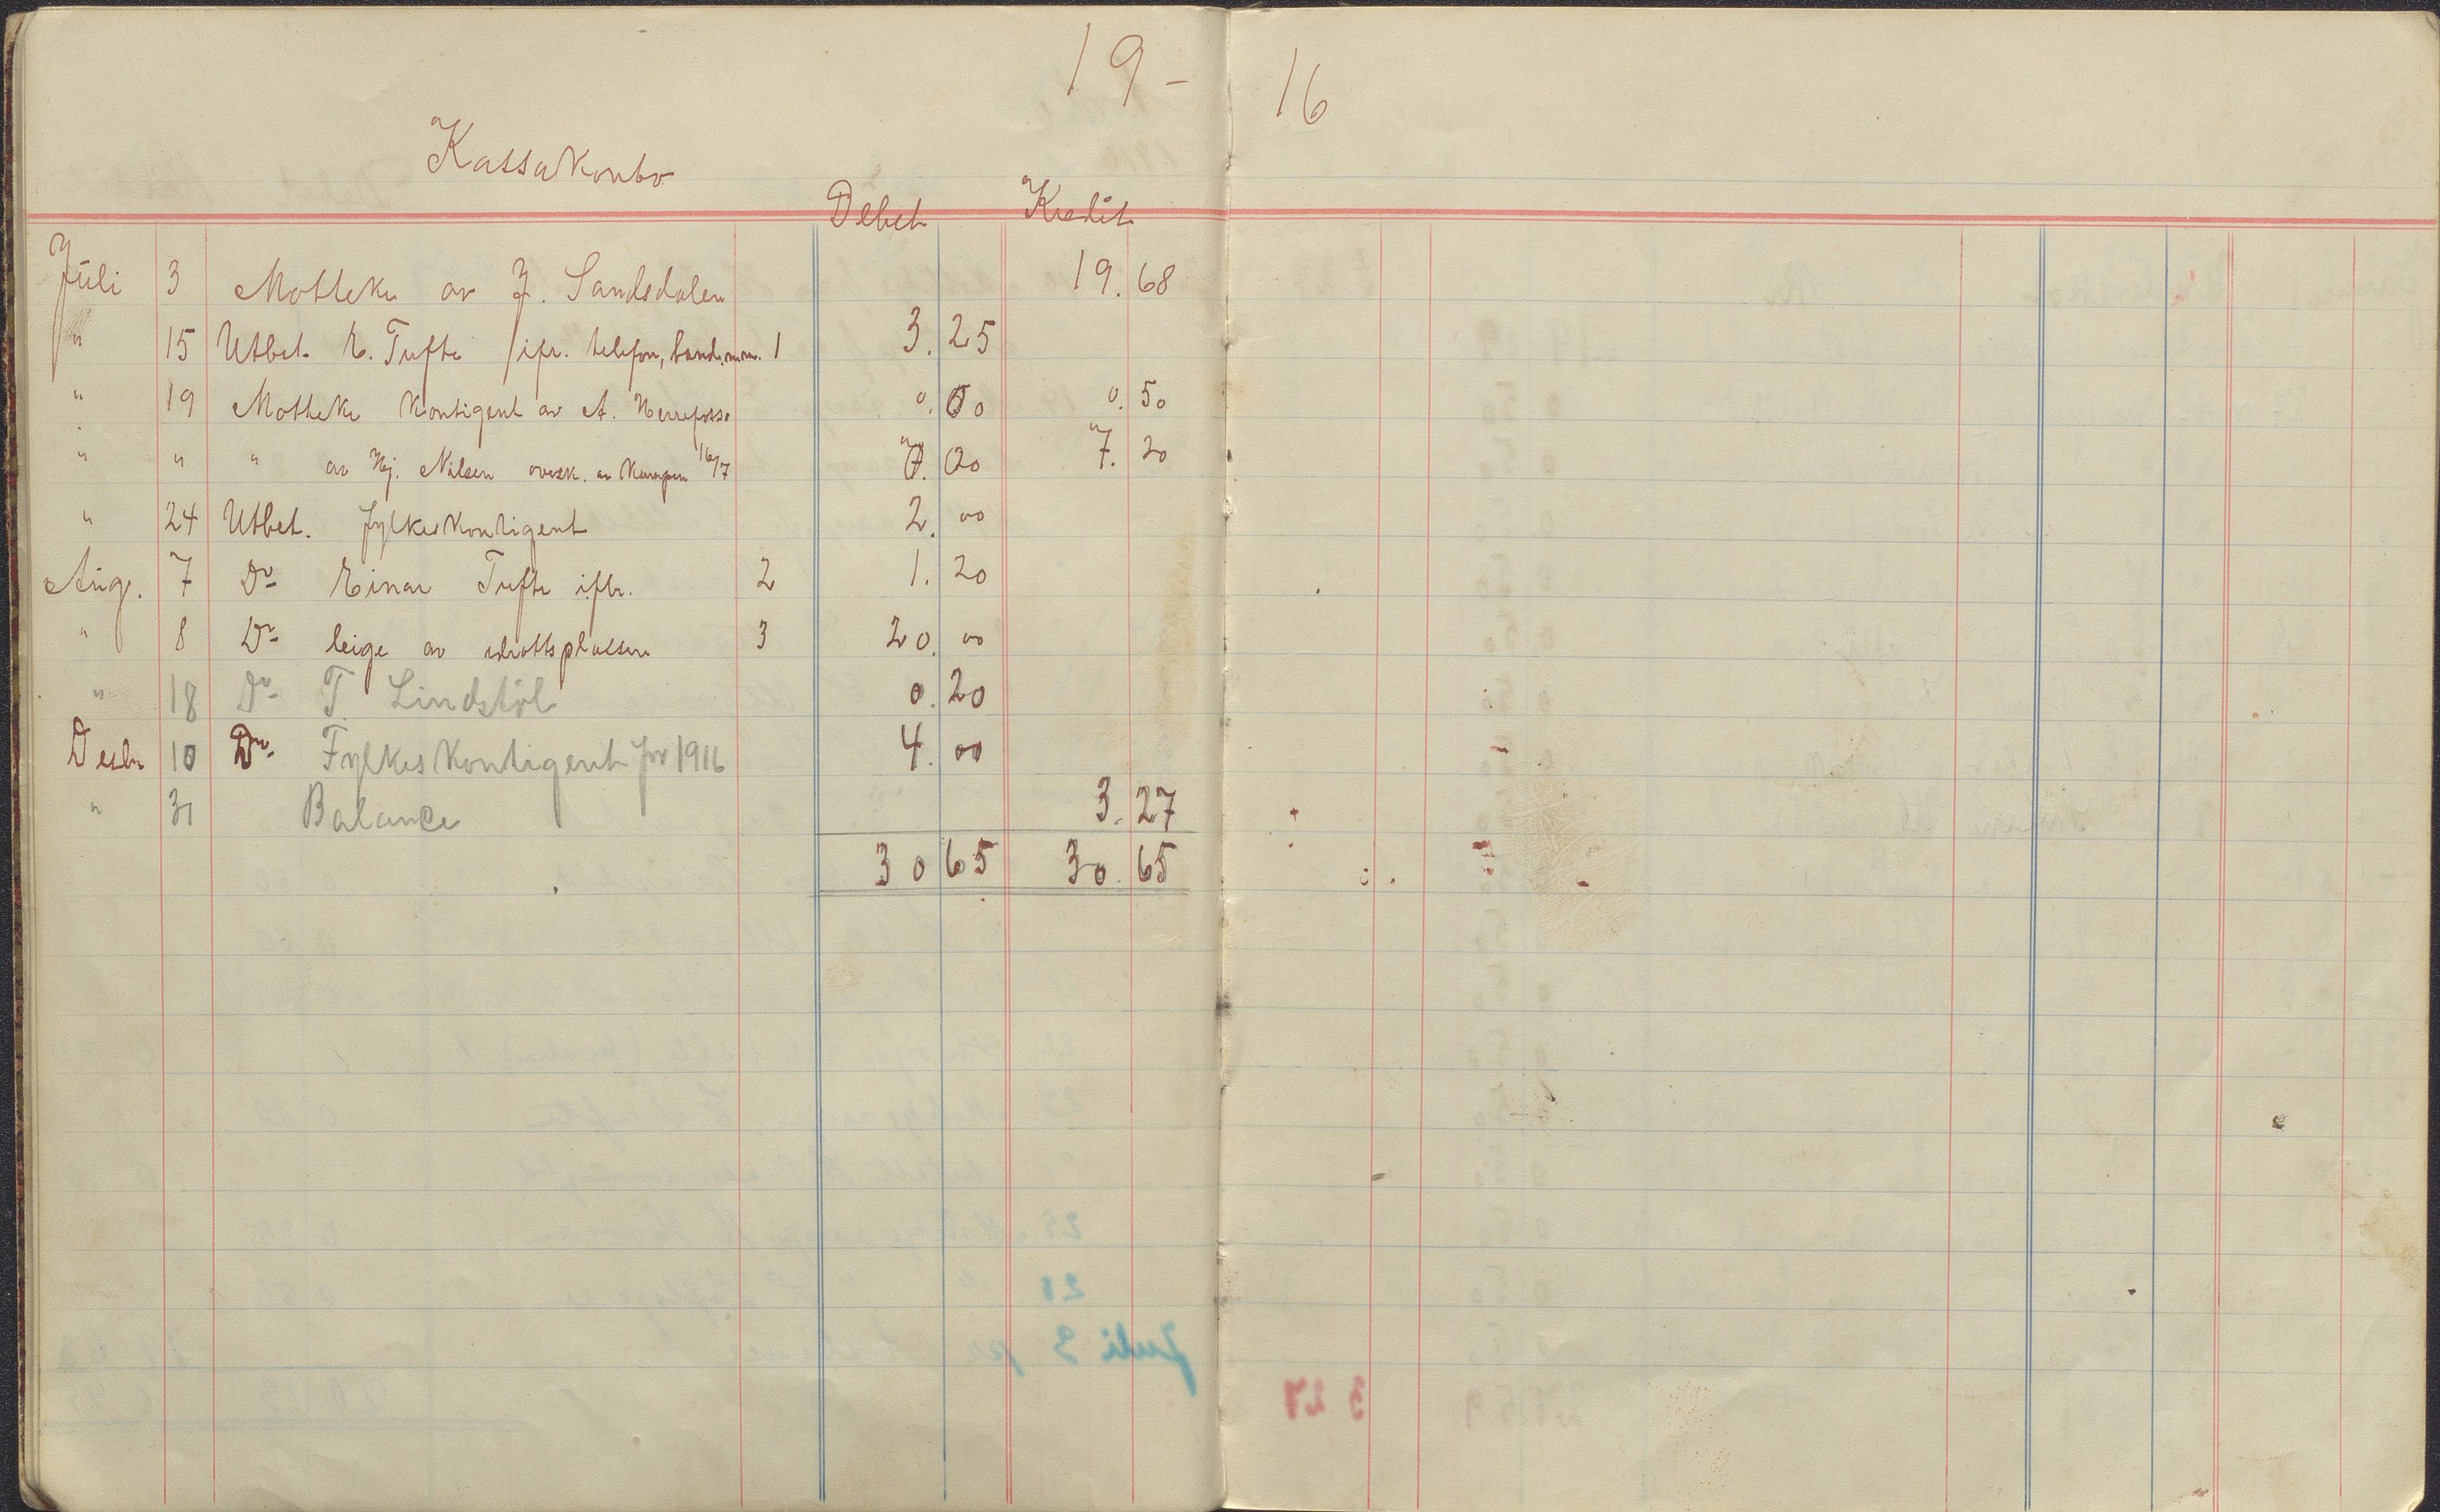 19-16
Kassakonto
Debet Kredit
Juli 3 Motteke av J. Sandsdalen 19.68
" 15 Utbet. E. Tufte ifr. telefon, band. m.m. 1 3.25
" 19 Motteke Kontigent av A. Herrefosse 0.00 0.50
" " " av Hj. Nilsen oversk. av Kampen 16/7 0.00 7.20
" 24 Utbet. fylkeskontigent 2.00
Aug. 7 Do Einar Tufte iflr. 2 1.20
" 8 Do leige av idrottsplassen 3 20.00
" 18 Do T. Lindstöl 0.20
Desbr 10 Do Fylkeskontigent for 1916 4.00
" 31 Balance 3.27
30 65 30.65